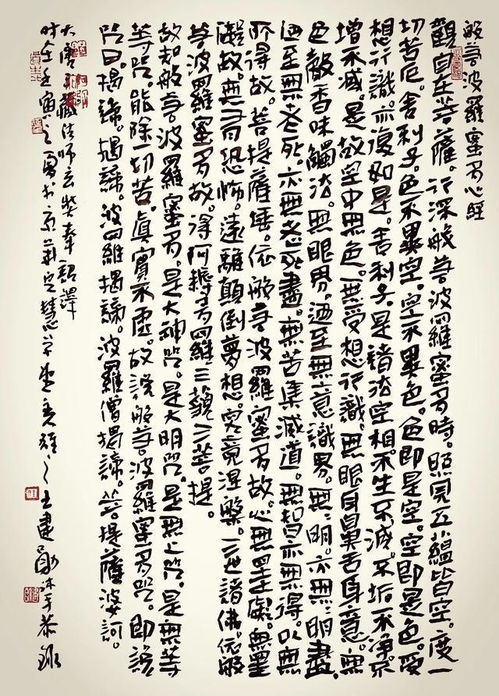 般若波羅蜜多心經
觀自在菩薩。行深般若波羅蜜多時。照見五蘊皆空。度一
切苦厄。舍利子。色不異空。空不異色。色即是空。空即是色。受
想行識。亦復如是。舍利子。是諸法空相。不生不滅。不垢不淨。不
增不減。是故空中無色。無受想行識。無眼耳鼻舌身意。無
色聲香味觸法。無眼界。乃至無意識界。無無明。亦無無明盡。
乃至無老死。亦無老死盡。無苦集滅道。無智亦無得。以無
所得故。菩提薩埵。依般若波羅蜜多故。心無罣礙。無罣
礙故。無有恐怖。遠離顛倒夢想。究竟涅槃。三世諸佛。依般
若波羅蜜多故。得阿耨多羅三藐三菩提。
故知般若波羅蜜多。是大神咒。是大明咒。是無上咒。是無等
等咒。能除一切苦。真實不虛。故說般若波羅蜜多咒。即說
咒曰。揭諦。揭諦。波羅揭諦。波羅僧揭諦。菩提薩婆訶。
大唐三藏法師玄奘奉詔譯
時在壬寅之夏於京 王建 沐手恭錄